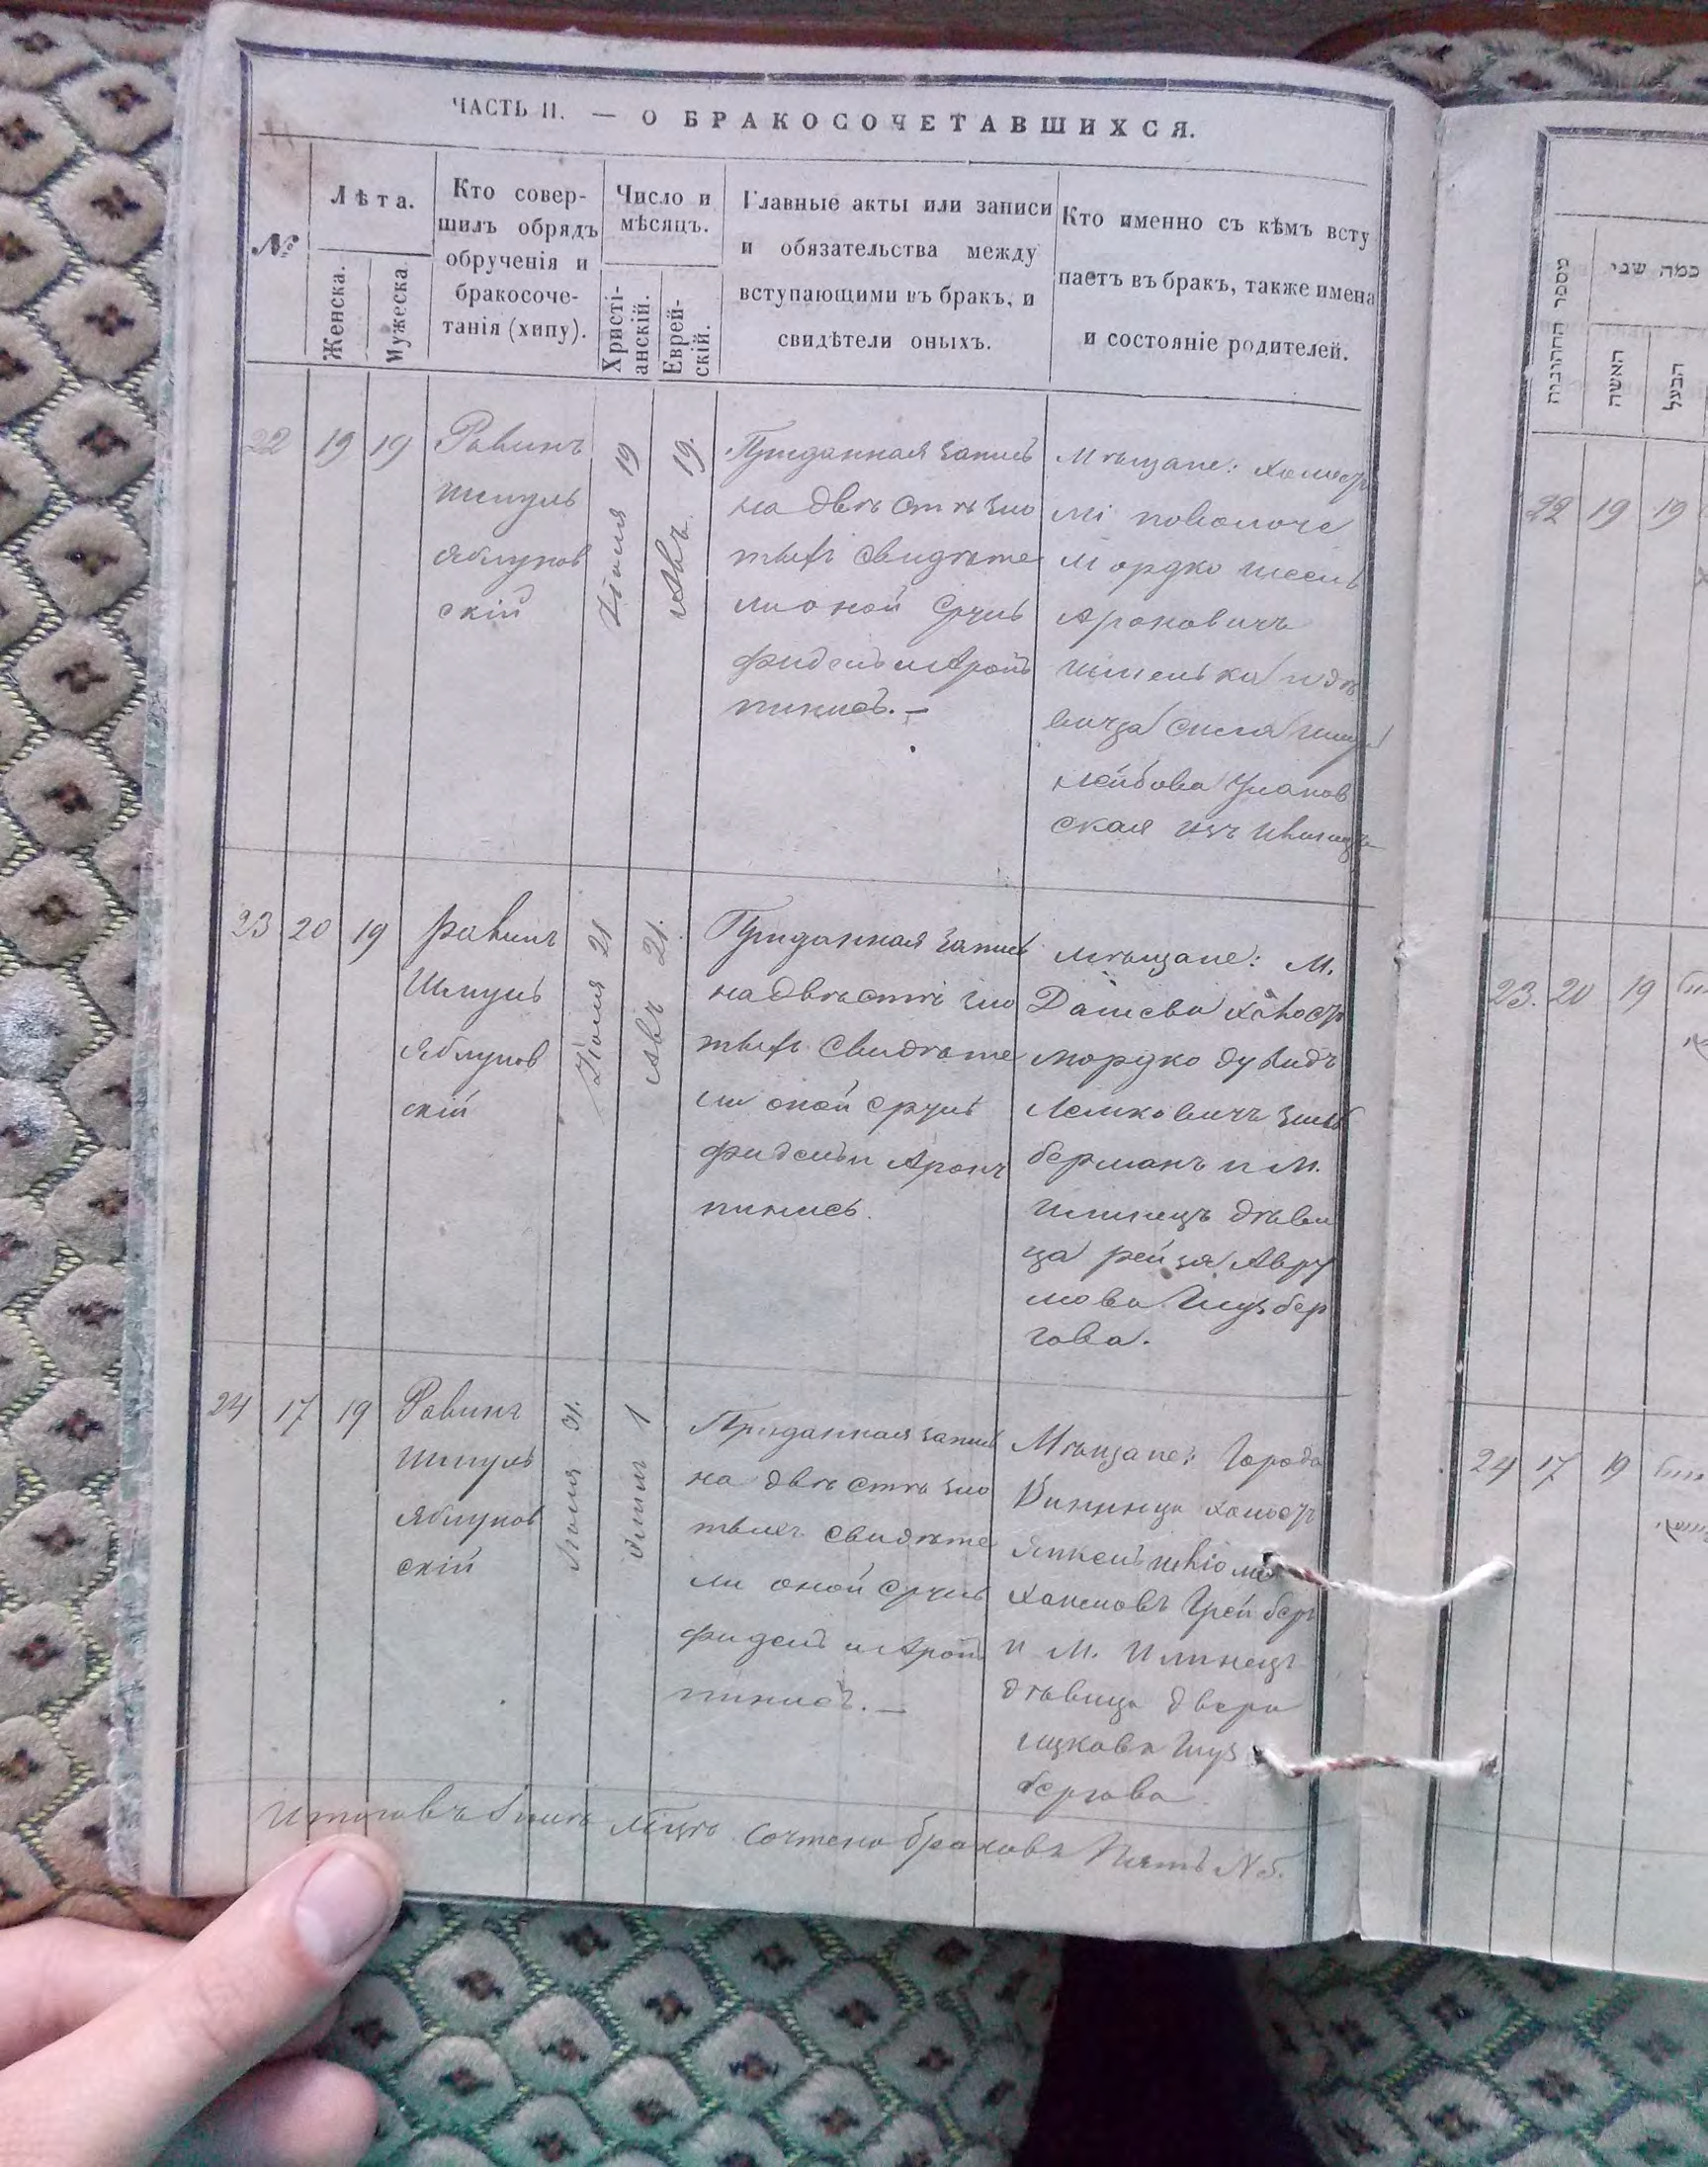 ЧАСТЬ II. — О БРАКОСОЧЕТАВШИХСЯ.
№
Лѣта.
Женска.
Мужеска.
Кто совер-
шилъ обрядъ
обрученія и
бракосоче-
танія (хипу).
Число и
мѣсяцъ.
Христі-
анскій.
Еврей-
скій.
Главные акты или записи
и обязательства между
вступающими въ бракъ, и
свидѣтели оныхъ.
Кто именно съ кѣмъ всту
паетъ въ бракъ, также имена
и состояніе родителей.
22
19
19
Равинъ
Шмуль
Яблунов
скій
Іюля 19
Авъ. 19.
Приданная запись
на двѣ стѣ зло
тыхъ свидѣте
ли оной Сруль
Фидель и Аронъ
пинись. —
Мѣщане: холост
Мордко
Ароновичъ
вица Сися
Лейбова
ская изъ
23
20
19
равинъ
Шмуль
Яблунов
скій
Іюля 21
Авъ 21.
Приданная запись
на двѣ стѣ зло
тыхъ свидѣте
ли оной сруль
фидель и Аронъ
пинись.
мѣщане: М.
Дашева холост
мордко дувидъ
Лемковичъ зиль
берманъ и М.
Илинецъ дѣви
ца рейзя Авру
мова Гинзбер
гова.
24
17
19
Равинъ
Шмуль
Яблунов
скій
Іюля 31.
Элулъ 1
Приданная запись
на двѣ стѣ зло
тыхъ свидѣте
ли оной сруль
фидель и Аронъ
пинись. —
Мѣщане: Города
Винница холост
Янкель
Хаимовъ
и М. Илинецъ
дѣвица двера
Ицкова Гинз
бергова
Итого въ Іюлѣ М-цѣ сочтено браковъ Пять № 5.
מספר החתונות
כמה שני
האשה
הבעל
22
19
19
23.
20
19
24
17
19